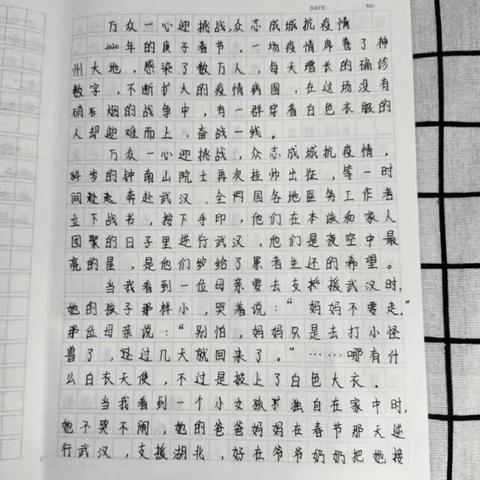 万众一心迎挑战,众志成城抗疫情
2020年的庚子春节，一场疫情席卷了神
州大地，感染了数万人，每天增长的确诊
数字，不断扩大的疫情病图，在这场没有
硝烟的战争中，有一群穿着白色衣服的
人却迎难而上，奋战一线。
万众一心迎挑战，众志成城抗疫情，
84岁的钟南山院士再次挂帅出征，等一时
间赶赴武汉，全国各地医务工作者
立下战书，按下手印，他们在本该和家人
团聚的日子里进行武汉，他们是夜空中最
亮的星，是他们给了患者生还的希望。
当我看到一位母亲要去支援武汉时，
她的孩子那样小，哭着说：“妈妈不要走，”
那位母亲说：“别怕，妈妈只是去打小怪
兽了，过几天就回来了。”……哪有什
么白衣天使，不过是披上了白色大衣．
当我看到一个小女孩独自在家中时，
她不哭不闹，她的爸爸妈妈在春节那天逆
行武汉，支援湖北，好在爷爷奶奶把她接